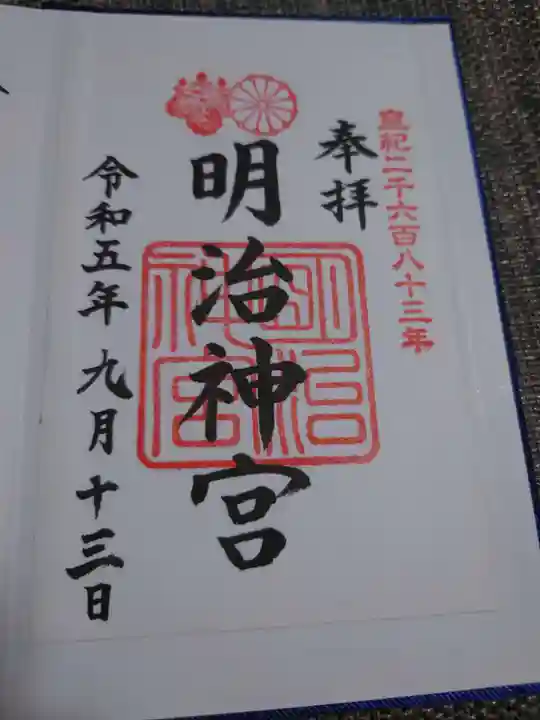 皇紀二千六百八十三年
奉拝
明治神宮
明治神宮
令和五年九月十三日